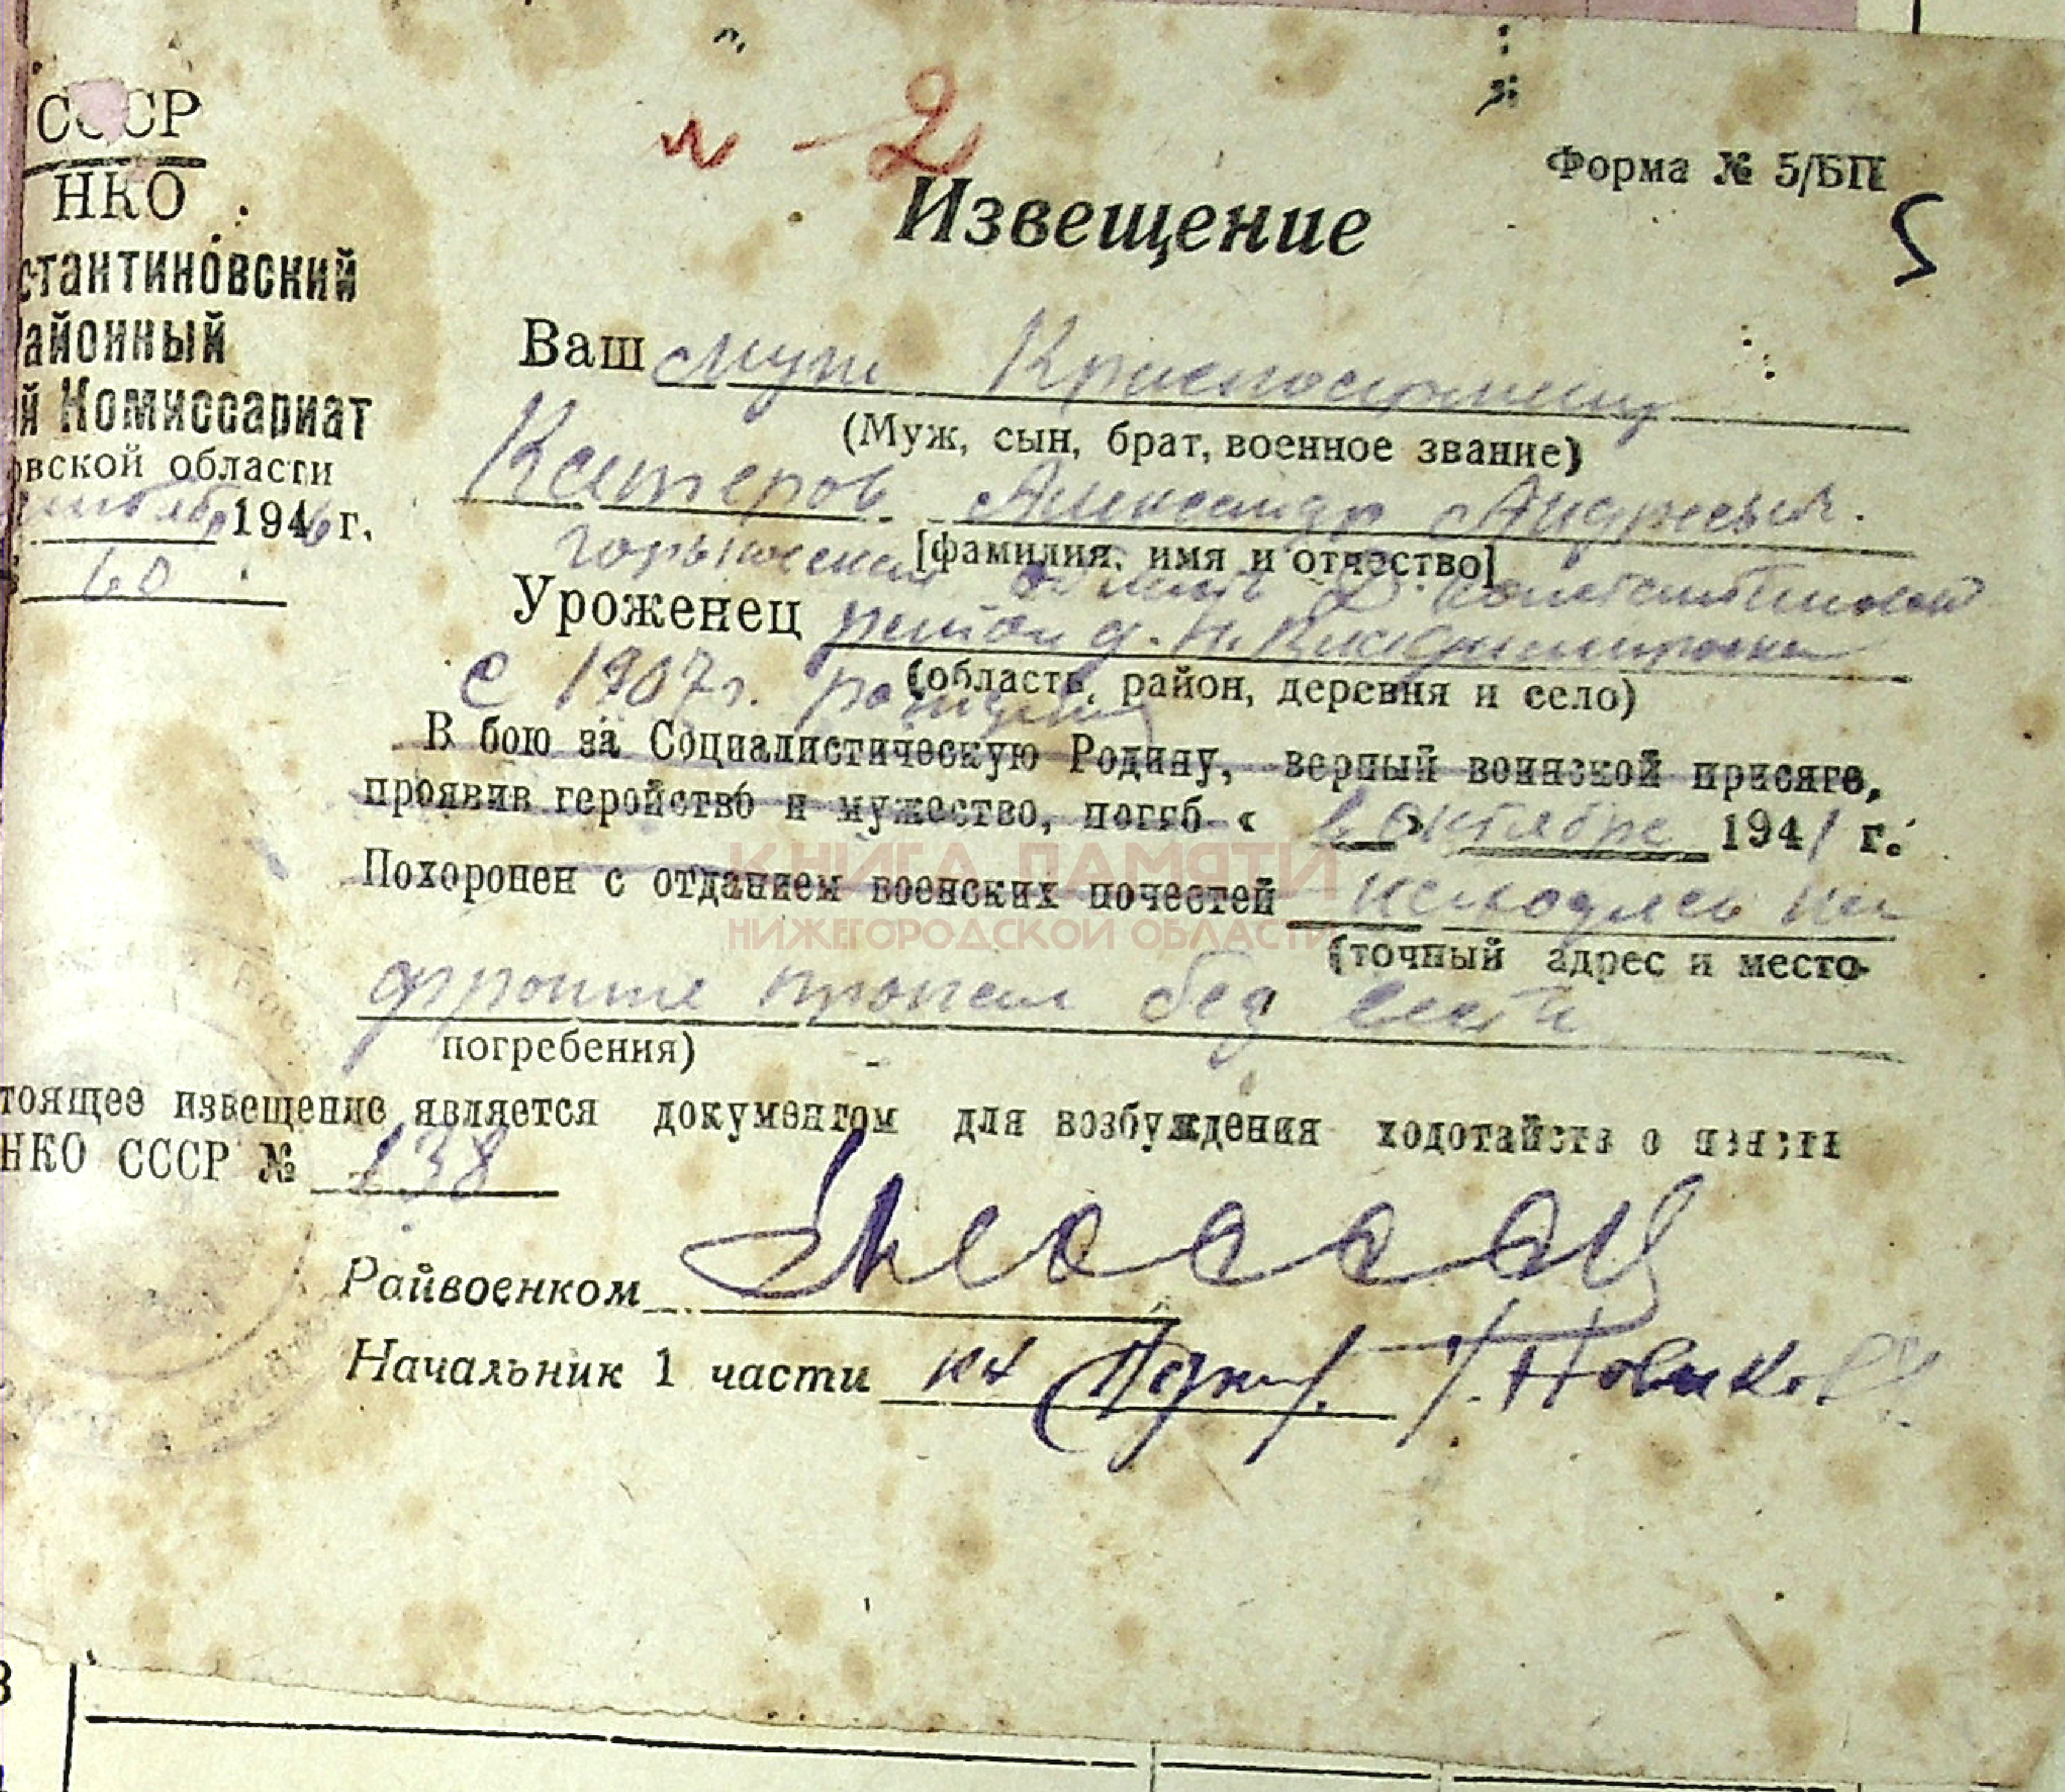 № 2
Форма № 5/БП
5
СССР
НКО
стантиновский
айонный
й Комиссариат
овской области
1946 г.
60
Извещение
Ваш муж Красноармеец
(Муж, сын, брат, военное звание)
Катеров Александр Андреевич.
[фамилия, имя и отчество]
Горьковская область Д. Константиновский
Уроженец район д. Н. Владимировка
(область, район, деревня и село)
с 1907 г. рождения
В бою за Социалистическую Родину, верный воинской присяге,
проявив геройство и мужество, погиб « » октябре 1941 г.
Похоронен с отданием военских почестей находясь на
(точный адрес и место-
фронте пропал без вести
погребения)
тоящее извещение является документом для возбуждения ходотайств о пенсии
НКО СССР № 138
Райвоенком
Начальник 1 части Новиков
КНИГА ПАМЯТИ
НИЖЕГОРОДСКОЙ ОБЛАСТИ